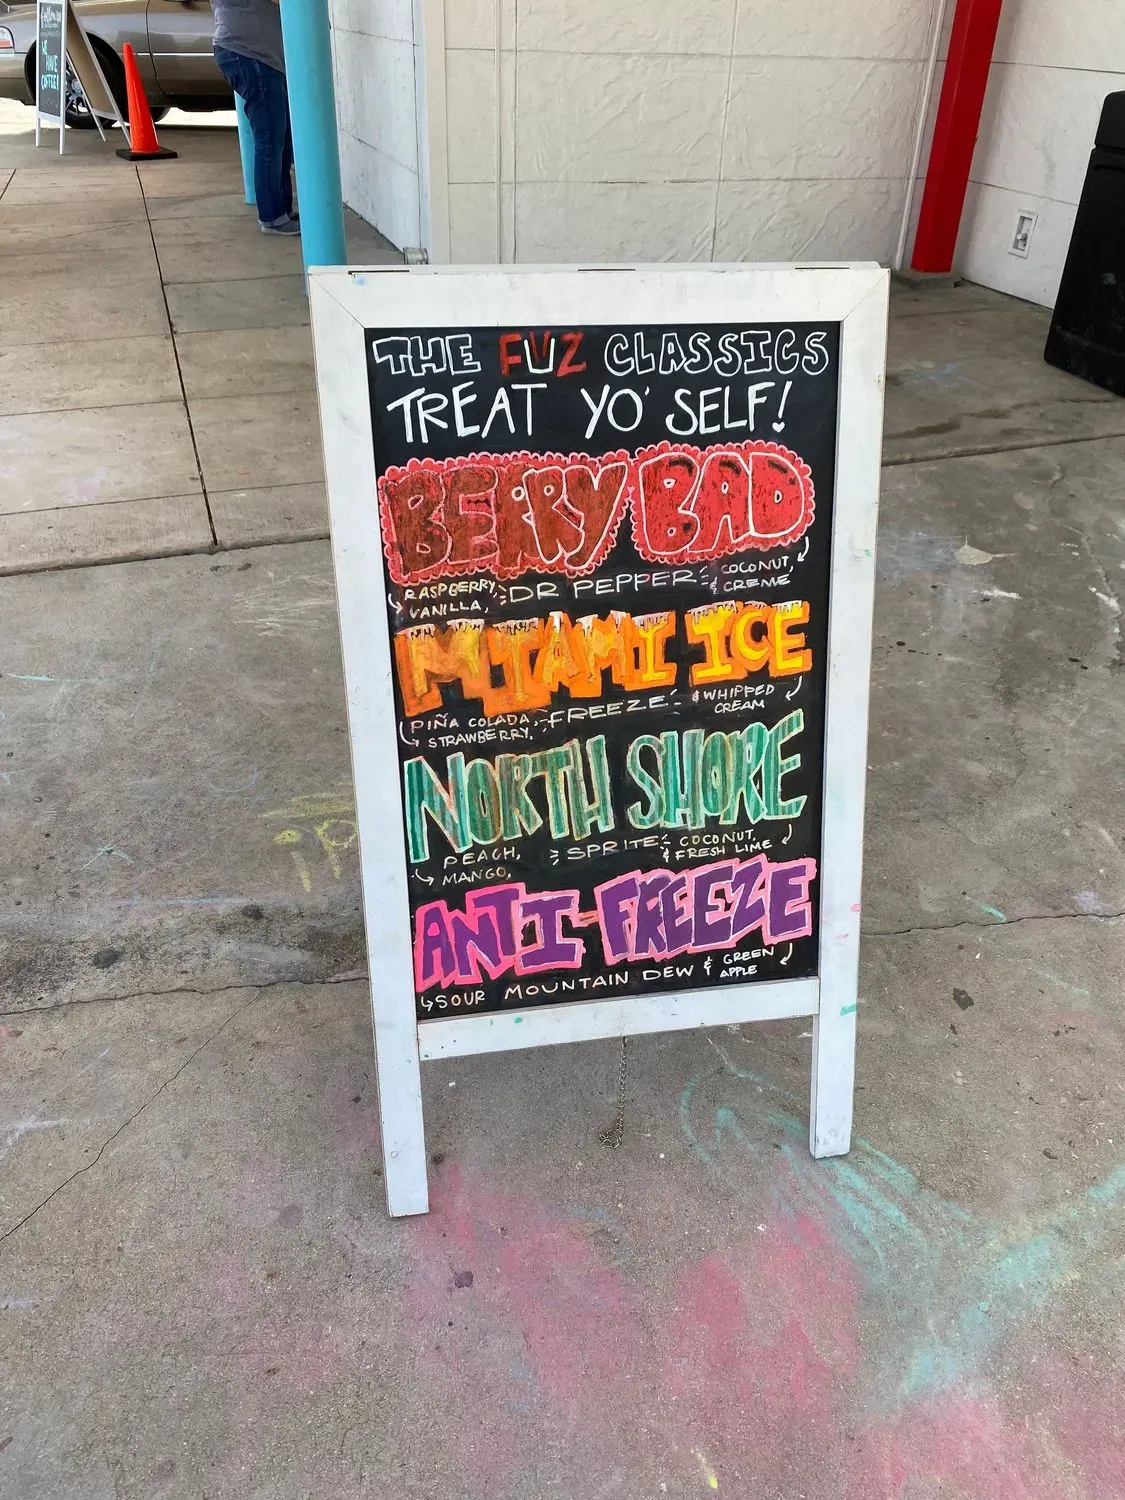 WE
HAVE
COFFEE!
THE FUZ CLASSICS
TREAT YO' SELF!
BERRY BAD
RASPBERRY, VANILLA, DR PEPPER & COCONUT, CREME
MIAMI ICE
PIÑA COLADA, STRAWBERRY, FREEZE & WHIPPED CREAM
NORTH SHORE
PEACH, MANGO, SPRITE & COCONUT, FRESH LIME
ANTI-FREEZE
SOUR MOUNTAIN DEW & GREEN APPLE